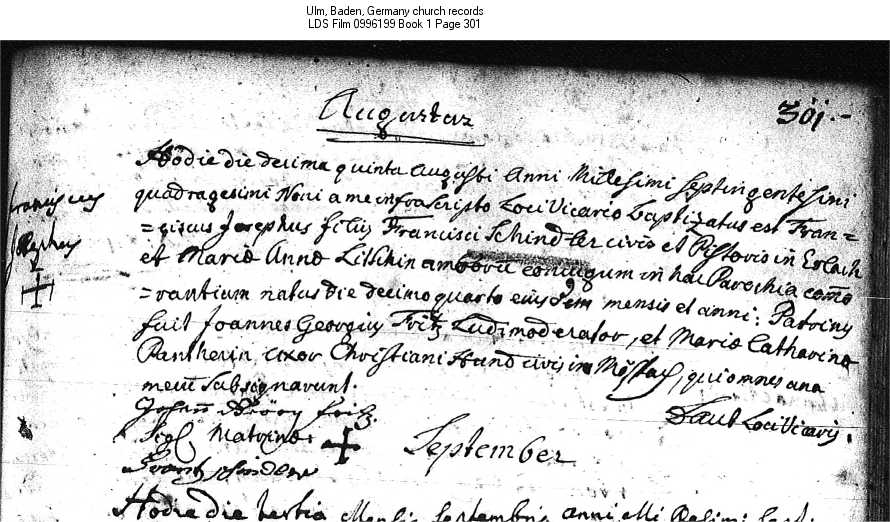 Ulm, Baden, Germany church records
LDS Film 0996199 Book 1 Page 301
Augustus
301.
Hodie die decima quinta Augusti Anni Millesimi septingentesimi
quadragesimi Noni a me infrascripto Loci Vicario baptizatus est Fran=
=ciscus Josephus filius Francisci Schindler civis et Pistoris in Erlach
et Mariæ Annæ amborum conjugum in hac Parochia
=rantium natus die decimo quarto ejusdem mensis et anni: Patrinus
fuit Joannes Georgius Fritz Ludimoderator, et Maria Catharina
Pantherin uxor Christiani Hund civis in qui omnes una
mecum subsignarunt.
Franciscus
Josephus
Fritz.
Loci Vicarius.
Matrinæ
September
Hodie die tertia Mensis Septembris anni